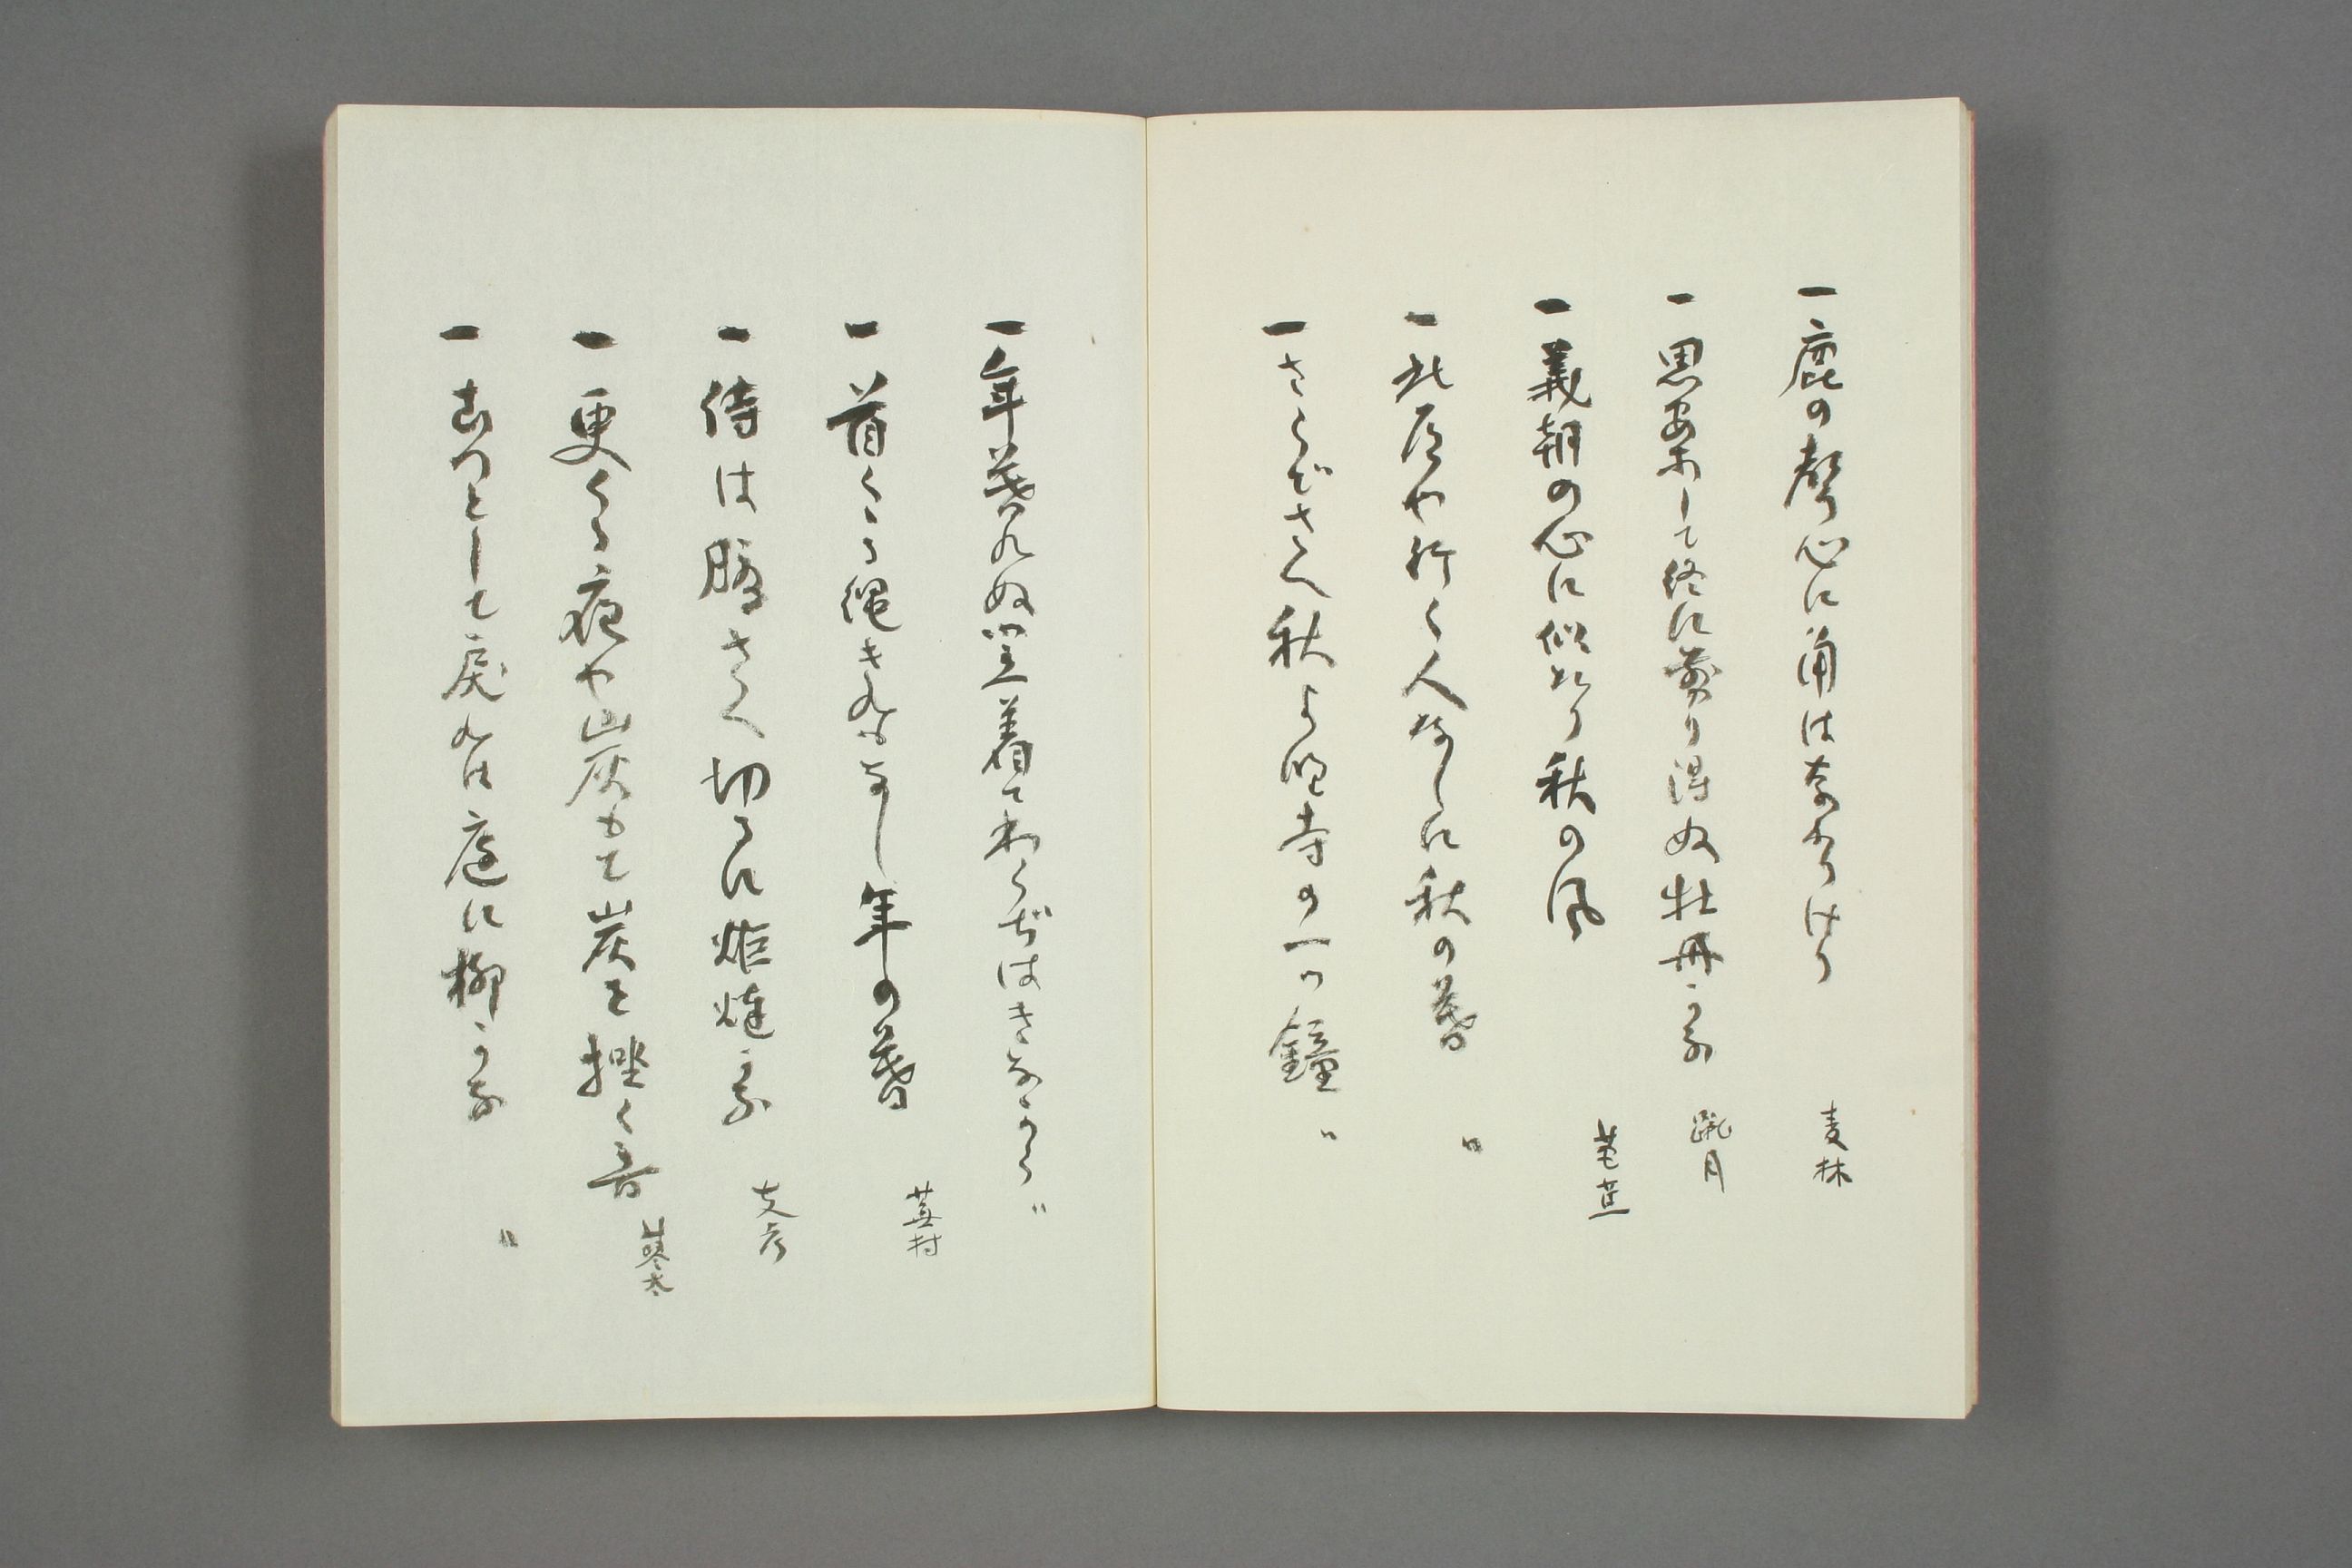 一 鹿の聲心に角はなかりけり 麦林
一 思案して終に剪り得ぬ牡丹かな 跳月
一 義朝の心に似たり秋の風 芭蕉
一 此道や行く人なしに秋の暮 〃
一 さらでさへ秋よ 寺の一つ鐘 〃
一 年暮れぬ笠着てわらぢはきながら 〃
一 首くくる縄きれもなし年の暮 蕪村
一 侍は腹さへ切るに炬燵かな 支考
一 更くる夜や炭もて炭を挫く音 蓼太
一 むつとして戻れは庭に柳かな 〃